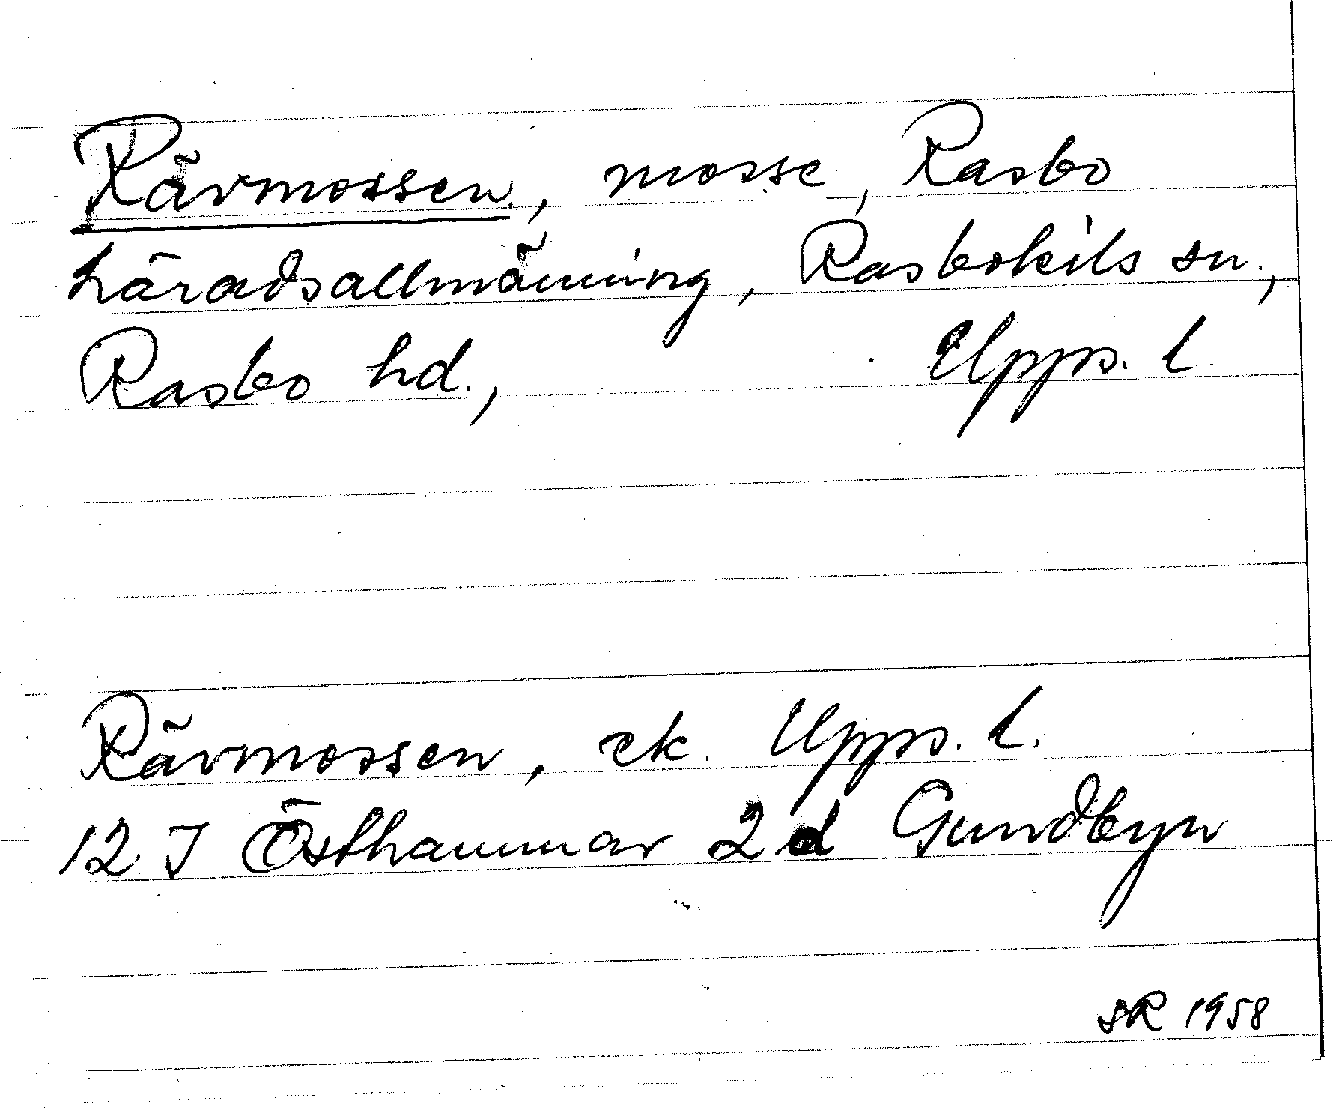 Rävmossen, mosse, Rasbo
häradsallmänning, Rasbokils sn.,
Rasbo hd., Upps. l
Rävmossen, ek. Upps. l.
12 I Östhammar 2 d Gundbyn
SR 1958